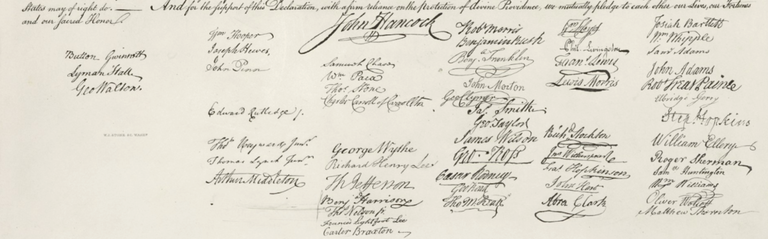 States may of right do. — And for the support of this Declaration, with a firm reliance on the Protection of divine Providence, we mutually pledge to each other our Lives, our Fortunes
and our sacred Honor.
Button Gwinnett
Lyman Hall
Geo Walton.
Wm Hooper
Joseph Hewes,
John Penn
Edward Rutledge /.
Thos Heyward Junr.
Thomas Lynch Junr.
Arthur Middleton
John Hancock
Samuel Chase
Wm Paca
Thos Stone
Charles Carroll of Carrollton
George Wythe
Richard Henry Lee
Th Jefferson
Benj Harrison
Thos Nelson jr.
Francis Lightfoot Lee
Carter Braxton
Robt Morris
Benjamin Rush
Benj. Franklin
John Morton
Geo Clymer
Jas. Smith
Geo. Taylor
James Wilson
Geo. Ross
Caesar Rodney
Geo Read
Tho M:Kean
Wm Floyd
Phil. Livingston
Frans. Lewis
Lewis Morris
Richd. Stockton
Jno Witherspoon
Fras. Hopkinson
John Hart
Abra Clark
Josiah Bartlett
Wm Whipple
Saml Adams
John Adams
Robt Treat Paine
Elbridge Gerry
Step. Hopkins
William Ellery
Roger Sherman
Saml Huntington
Wm Williams
Oliver Wolcott
Matthew Thornton